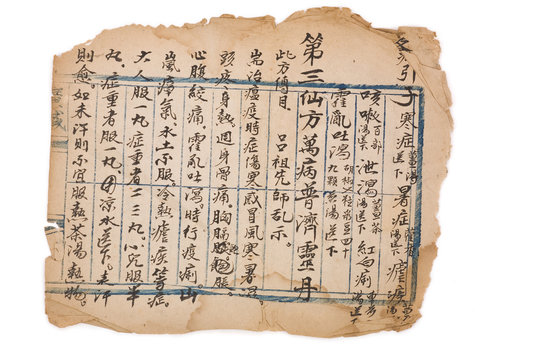 引子寒症薑湯送下暑症湯送下瘧疾
咳嗽百部湯送下泄瀉薑茶湯送下紅白痢車前湯送下
霍亂吐瀉胡椒七粒菉豆四十九顆煎湯送下
第三仙方萬病普濟靈丹
此方傳自 呂祖先師乩示。
耑治瘟疫時症傷寒感冒風寒暑濕
頭疼身熱週身骨痛。胸膈飽脹。
心腹絞痛。霍亂吐瀉時行疫痢。山
嵐瘴氣水土不服。冷熱瘧疾等症。
大人服一丸症重者二三丸。小兒服半
丸。症重者服一丸。用涼水送下。汗
則愈。如未汗則不宜服熱茶湯熱物。